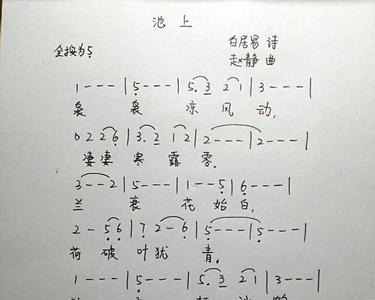 池上
白居易 诗
全按为5
赵静 曲
1 - - - | 5 - - - | 5 · 3 2 1 | 3 - - - |
袅 袅 凉 风 动,
0 2 2 2 6 | 3 · 2 1 2 | 2 - - - | 2 - - - |
凄凄 寒 露 零.
3 - - 2 | 5 - - - | 1 - - 5 | 6 - - - |
兰 衰 花 始 白,
2 - 5 6 | 7 2 - 6 | 5 - - - | 5 - - - |
荷 破 叶 犹 青.
1 - - - | 5 - - - | 5 · 3 2 1 | 3 - - - |